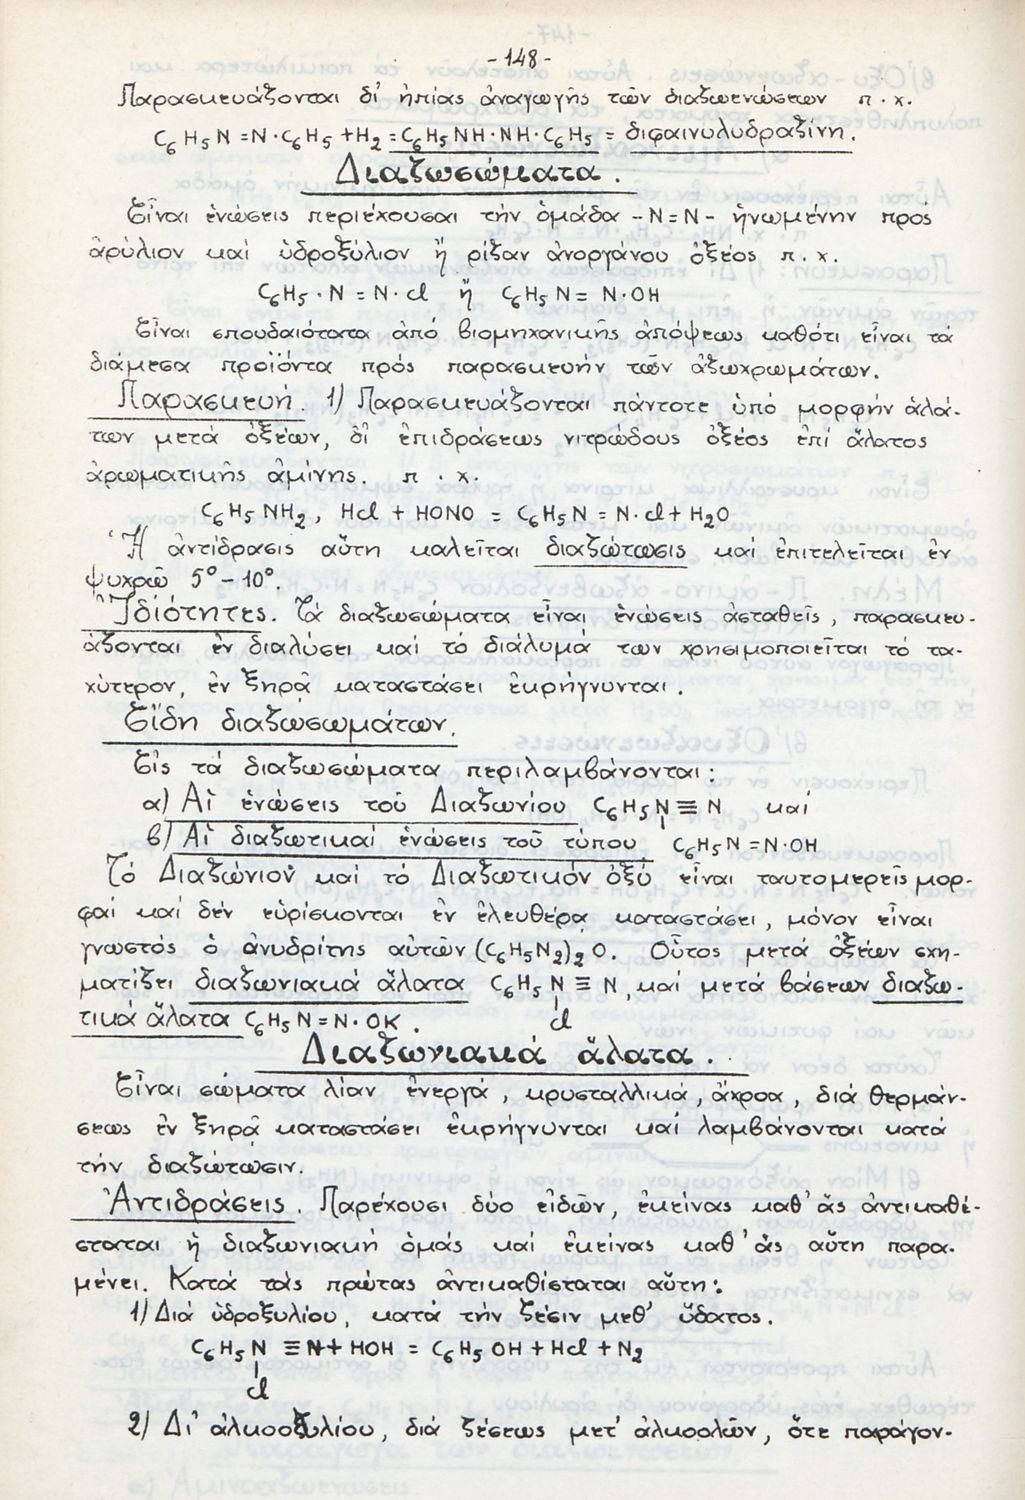 -148-
Παρασκευάζονται δι' ἠπίας ἀναγωγῆς τῶν διαζωενώσεων π.χ.
C₆H₅N=N·C₆H₅+H₂=C₆H₅NH·NH·C₆H₅ = διφαινυλυδραζίνη.
Διαζωσώματα.
Εἶναι ἑνώσεις περιέχουσαι τήν ὁμάδα -N=N- ἡνωμένην πρός
ἀρύλιον καί ὑδροξύλιον ἤ ρίζαν ἀνοργάνου ὀξέος π.χ.
C₆H₅·N=N·Cl ἤ C₆H₅N=N·OH
Εἶναι σπουδαιότατα ἀπό βιομηχανικῆς ἀπόψεως καθότι εἶναι τά
διάμεσα προϊόντα πρός παρασκευήν τῶν ἀζωχρωμάτων.
Παρασκευή. 1) Παρασκευάζονται πάντοτε ὑπό μορφήν ἁλά-
των μετά ὀξέων, δι' ἐπιδράσεως νιτρώδους ὀξέος ἐπί ἅλατος
ἀρωματικῆς ἀμίνης. π.χ.
C₆H₅NH₂, HCl + HONO = C₆H₅N=N·Cl+H₂O
Ἡ ἀντίδρασις αὕτη καλεῖται διαζώτωσις καί ἐπιτελεῖται ἐν
ψυχρῶ 5°-10°.
Ἰδιότητες. Τά διαζωσώματα εἶναι ἑνώσεις ἀσταθεῖς, παρασκευ-
άζονται ἐν διαλύσει καί τό διάλυμά των χρησιμοποιεῖται τό τα-
χύτερον, ἐν ξηρᾷ καταστάσει ἐκρήγνυνται.
Εἴδη διαζωσωμάτων.
Εἰς τά διαζωσώματα περιλαμβάνονται:
α) Αἱ ἑνώσεις τοῦ Διαζωνίου C₆H₅N≡N καί
β) Αἱ διαζωτικαί ἑνώσεις τοῦ τύπου C₆H₅N=N·OH
Τό Διαζώνιον καί τό Διαζωτικόν ὀξύ εἶναι ταυτομερεῖς μορ-
φαί καί δέν εὑρίσκονται ἐν ἐλευθέρᾳ καταστάσει, μόνον εἶναι
γνωστός ὁ ἀνυδρίτης αὐτῶν (C₆H₅N₂)₂O. Οὗτος μετά ὀξέων σχη-
ματίζει διαζωνιακά ἅλατα C₆H₅N≡N, καί μετά βάσεων διαζω-
τικά ἅλατα C₆H₅N=N·OK. Cl
Διαζωνιακά ἅλατα.
Εἶναι σώματα λίαν ἐνεργά, κρυσταλλικά, ἄχροα, διά θερμάν-
σεως ἐν ξηρᾷ καταστάσει ἐκρήγνυνται καί λαμβάνονται κατά
τήν διαζώτωσιν.
Ἀντιδράσεις. Παρέχουσι δύο εἰδῶν, ἐκείνας καθ' ἅς ἀντικαθί-
σταται ἡ διαζωνιακή ὁμάς καί ἐκείνας καθ' ἅς αὕτη παρα-
μένει. Κατά τάς πρώτας ἀντικαθίσταται αὕτη:
1) Διά ὑδροξυλίου, κατά τήν ζέσιν μεθ' ὕδατος.
C₆H₅N≡N+HOH = C₆H₅OH+HCl+N₂
Cl
2) Δι' ἀλκοοξυλίου, διά ζέσεως μετ' ἀλκοολῶν, ὅτε παράγον-